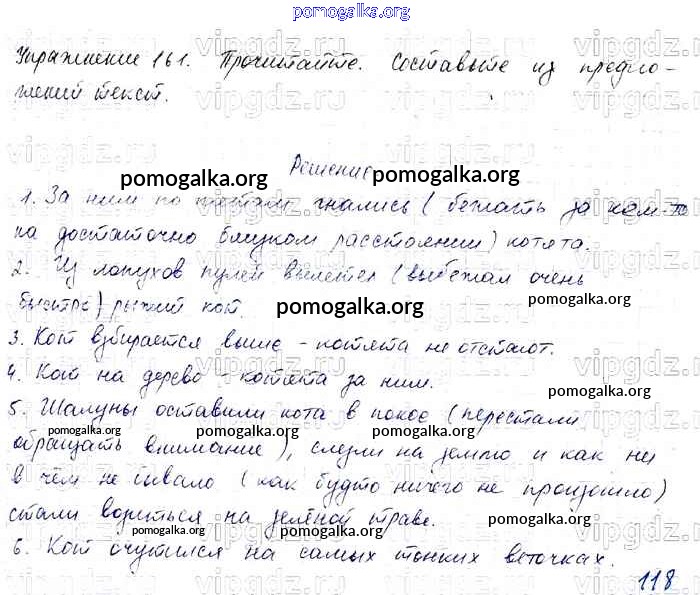 pomogalka.org
Упражнение 161. Прочитайте. Составьте из предло-
жений текст.
Решение
pomogalka.org pomogalka.org
1. За ним по пятам гнались (бежать за кем-то
на достаточно близком расстоянии) котята.
2. Из лопухов пулей вылетел (выбежал очень
быстро) рыжий кот.
pomogalka.org pomogalka.org
3. Кот взбирается выше - котята не отстают.
4. Кот на дерево - котята за ним.
pomogalka.org
5. Шалуны оставили кота в покое (перестали
обращать внимание), слезли на землю и как ни
pomogalka.org pomogalka.org pomogalka.org
в чём не бывало (как будто ничего не произошло)
стали возиться на зелёной траве.
pomogalka.org pomogalka.org
6. Кот очутился на самых тонких веточках.
118